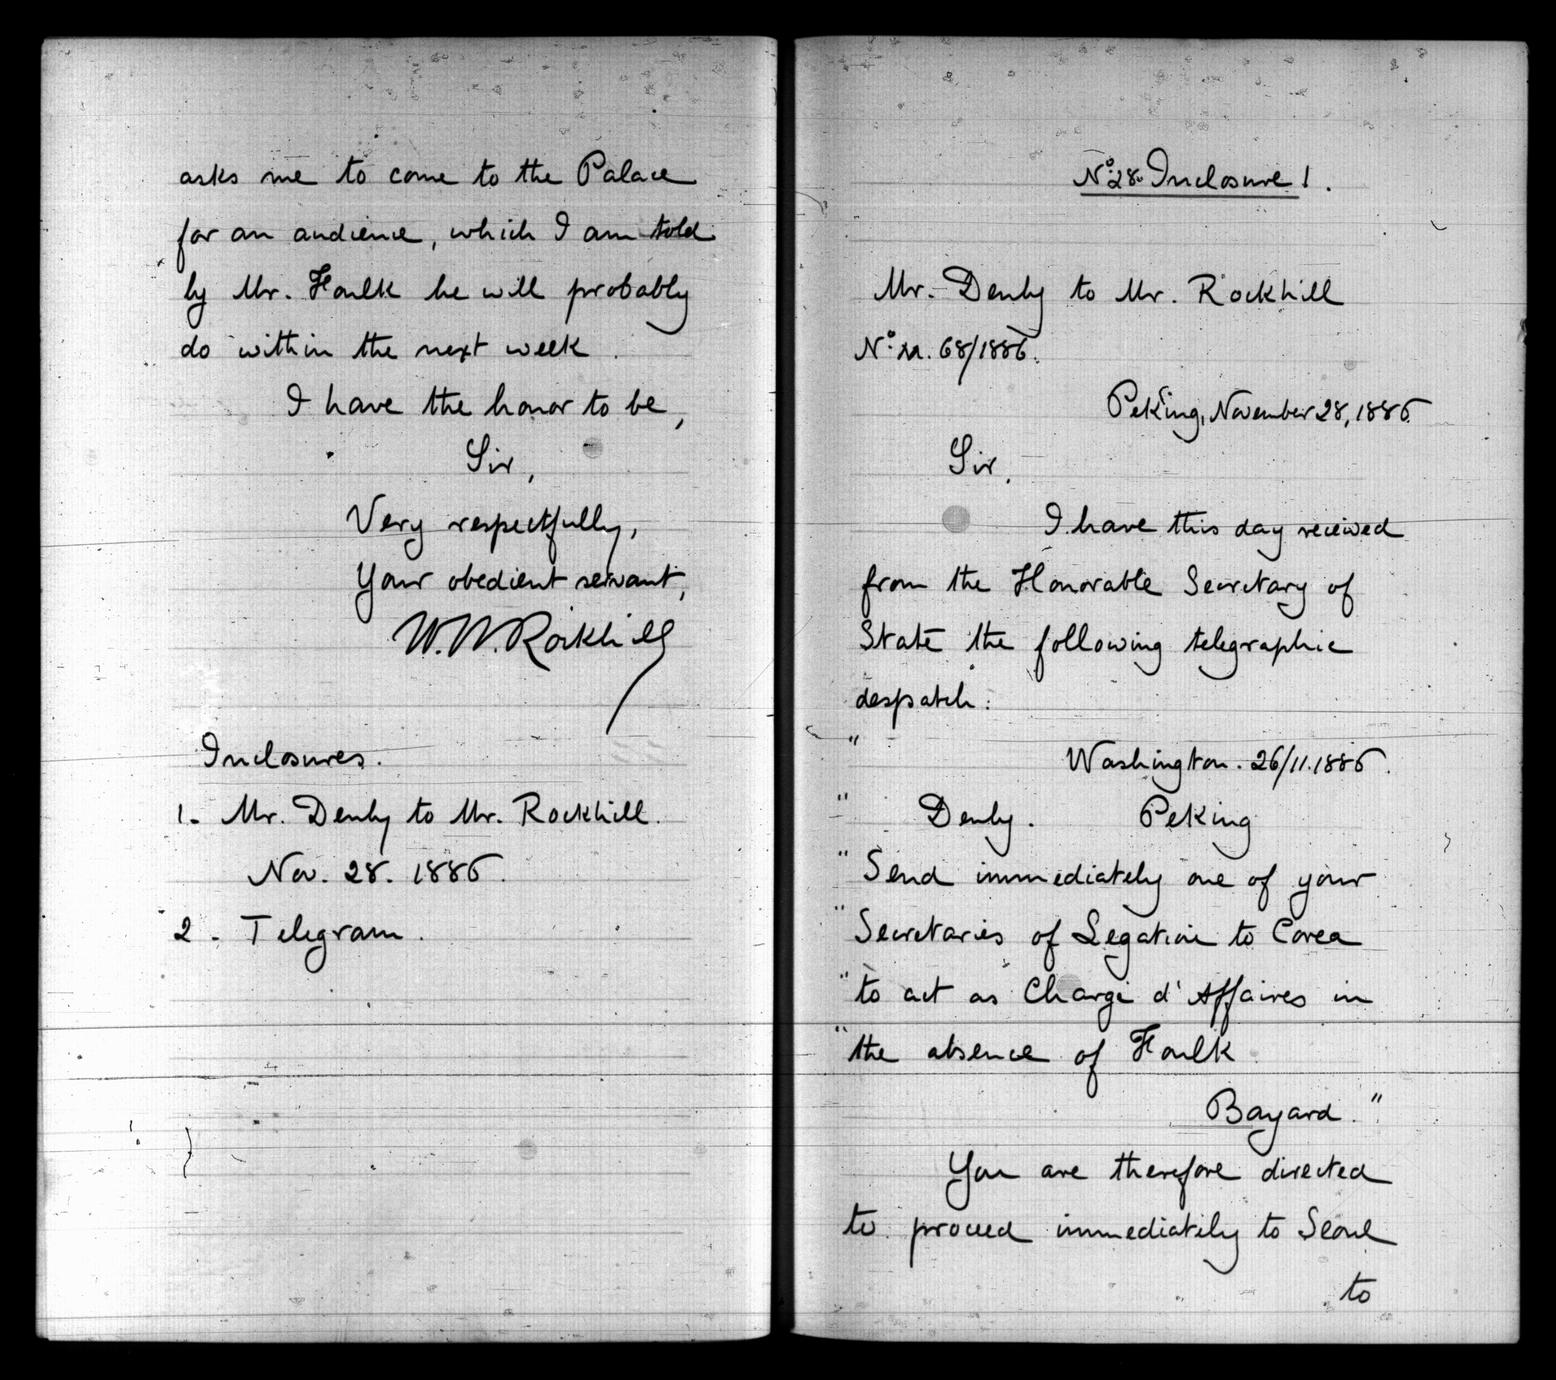 asks me to come to the Palace
for an audience, which I am told
by Mr. Foulk he will probably
do within the next week.
I have the honor to be,
Sir,
Very respectfully,
Your obedient servant,
W.W. Rockhill
Inclosures.
1. Mr. Denby to Mr. Rockhill.
Nov. 28. 1886.
2. Telegram.
No. 28. Inclosure 1.
Mr. Denby to Mr. Rockhill
No. 68/1886.
Peking, November 28, 1886.
Sir,
I have this day received
from the Honorable Secretary of
State the following telegraphic
despatch:
" Washington. 26/11.1886.
" Denby. Peking
" Send immediately one of your
" Secretaries of Legation to Corea
" to act as Chargé d'Affaires in
" the absence of Foulk
Bayard."
You are therefore directed
to proceed immediately to Seoul
to